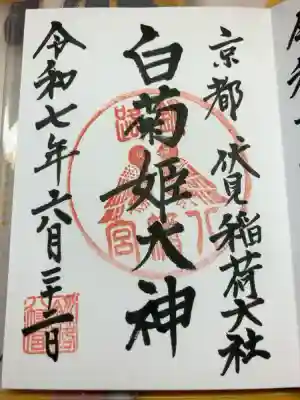 京都 伏見稲荷大社
白菊姫大神
令和七年六月二十二日